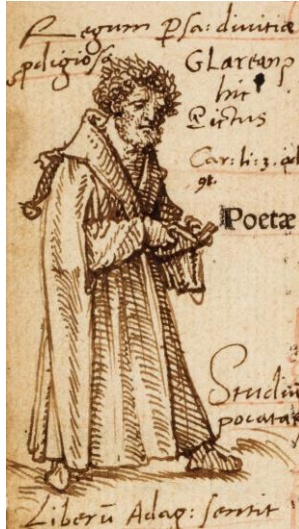 Regum Psa: divitiæ
pdigiosa
GLareanꝰ
hic
Pictus
Car: li: 3. od
9t.
Poetæ
Studiu
pocatar
Liberũ Adag: sentit